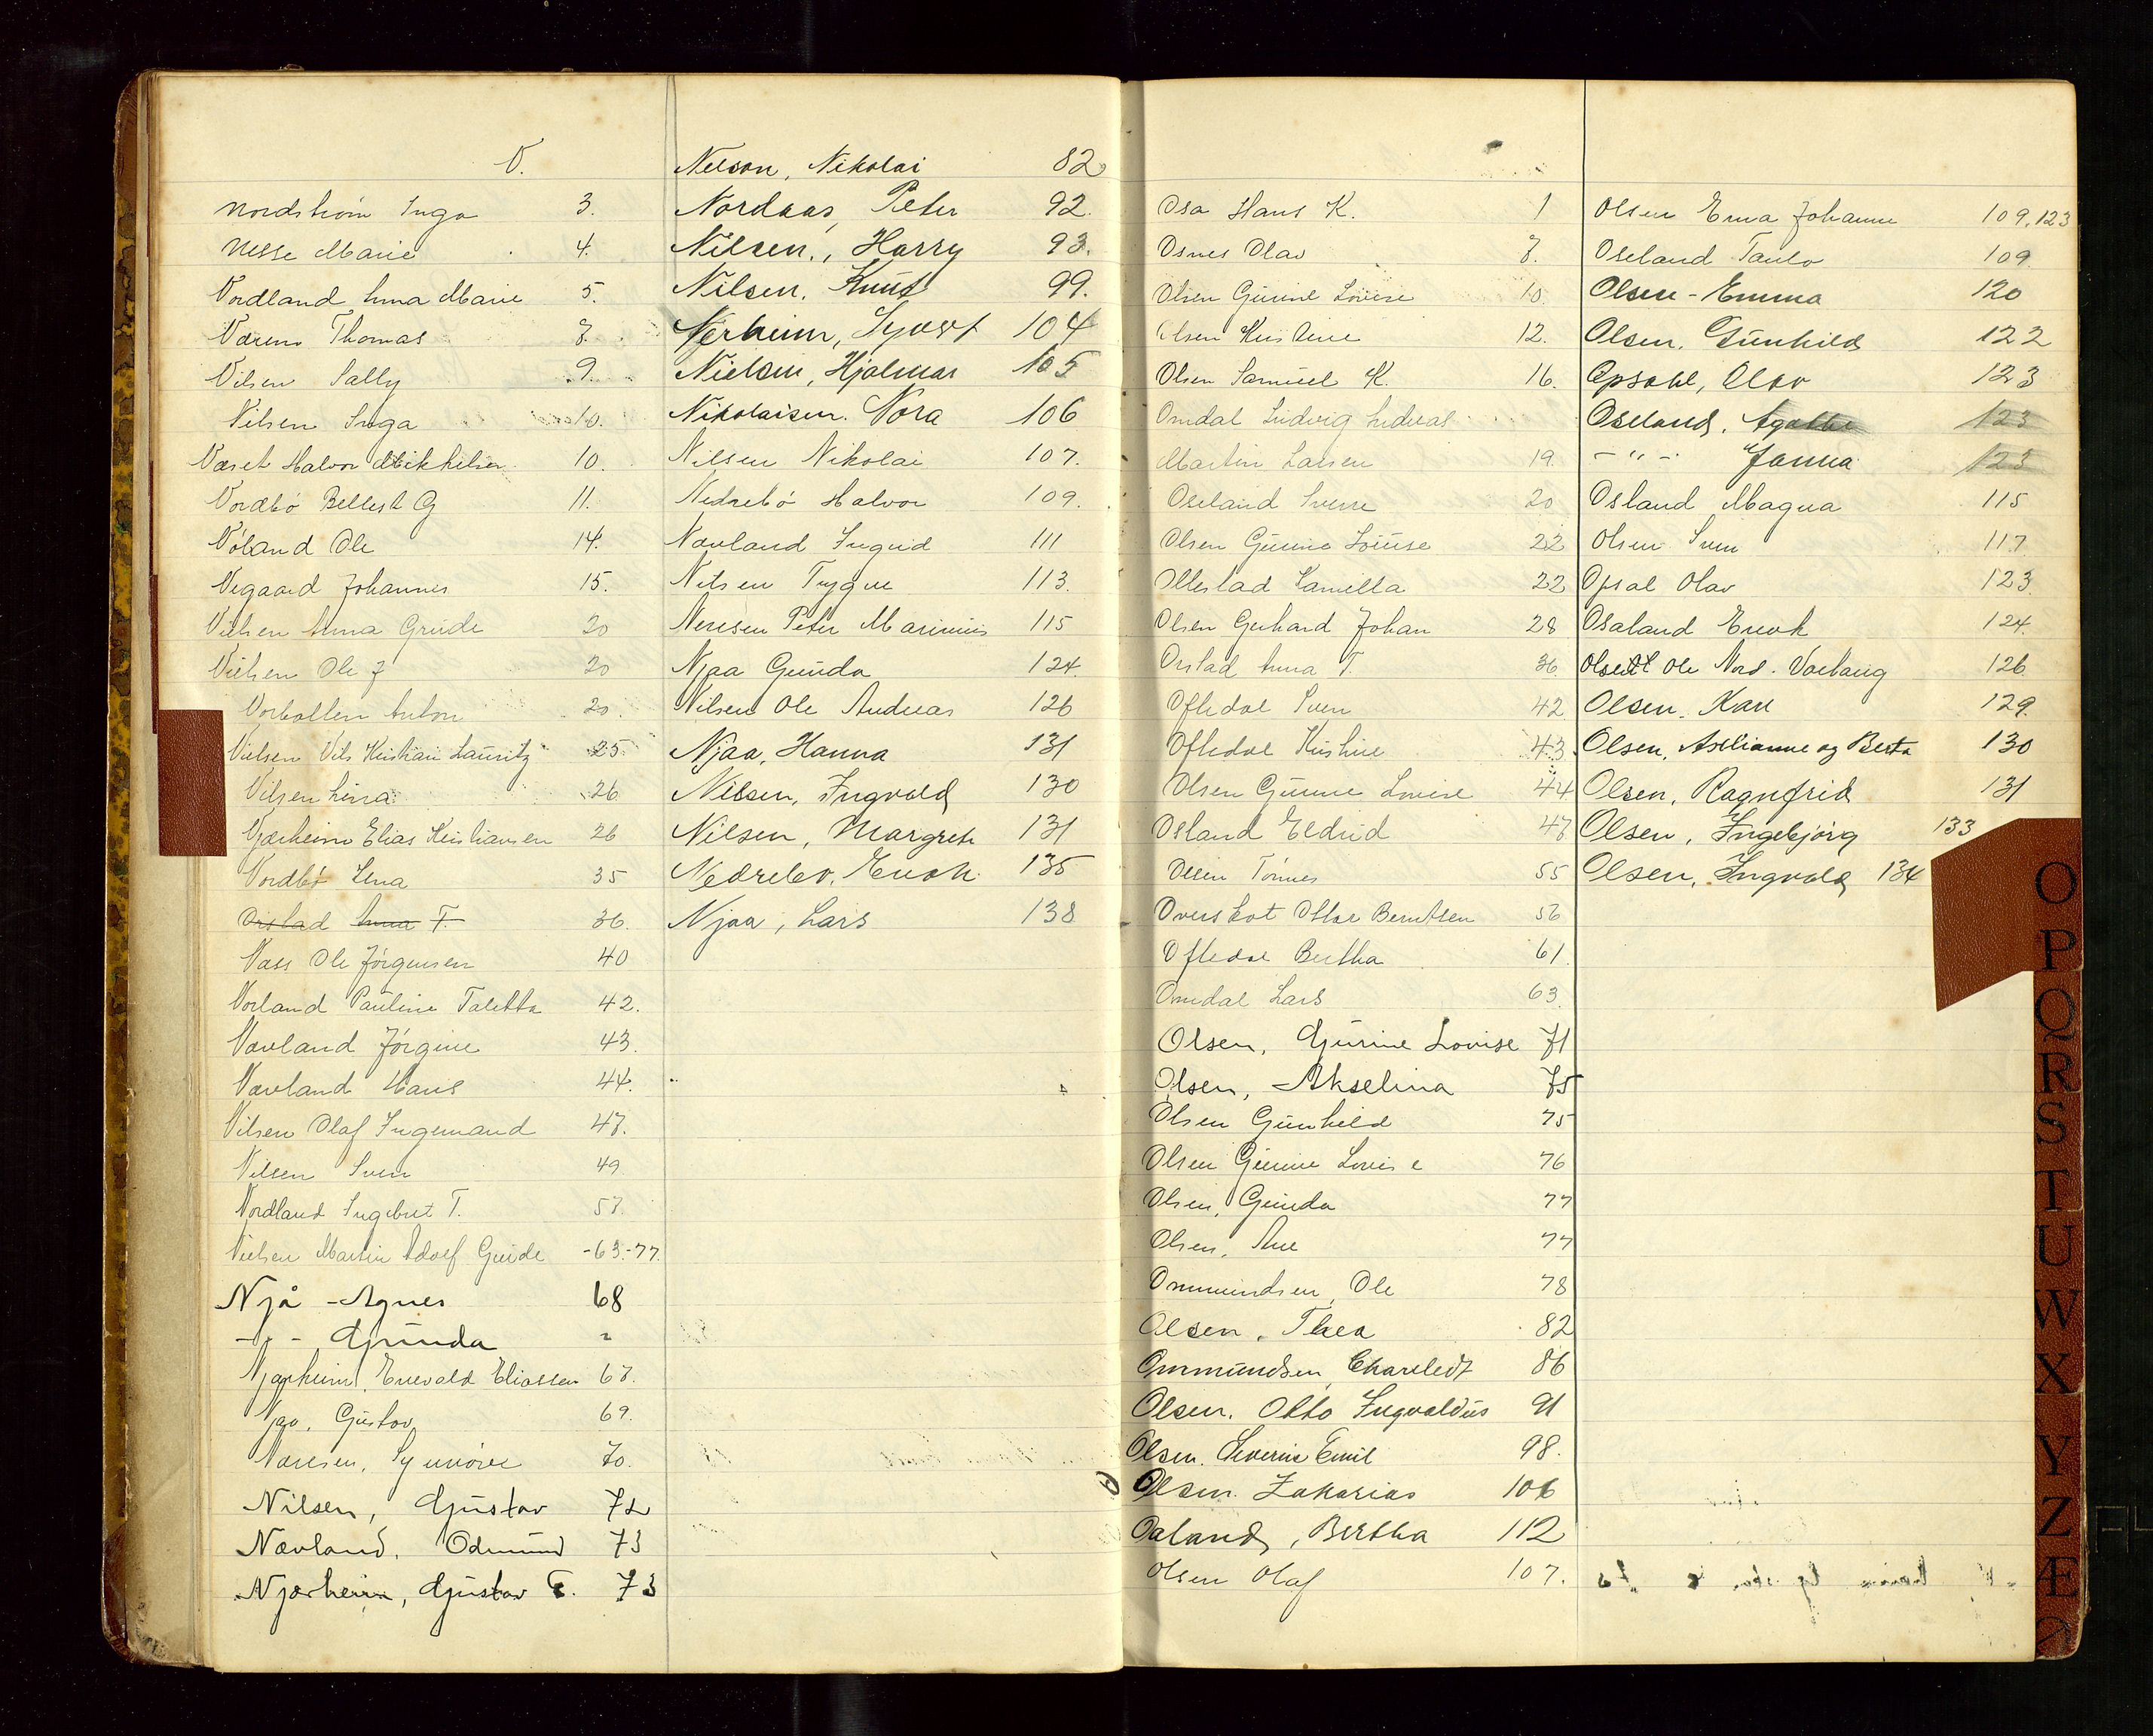 N.
Nordstrøm Inga 3.
Nesse Marie 4.
Nordland Anna Marie 5.
Thomas 8.
Nilsen Sally 9.
Nilsen Inga 10.
Næset Halvor Mikkelsen 10.
Nordbø G 11.
Nøland Ole 14.
Negaard Johannes 15.
Nielsen Anna Grude 20
Nielsen Ole J 20
Anton 20.
Nielsen Nils Kristian Lauritz 25.
Nilsen Lina 26
Njærheim Elias Kristiansen 26
Nordbø Lena 35
Orstad Anna T. 36.
Næss Ole Jörgensen 40
Norland Pauline Taletta 42.
Nævland Jörgine 43.
Nævland Hans 44.
Nilsen Olaf Ingemand 47.
Nilsen Sven 49
Nordland Ingebret T. 57.
Nielsen Martin Adolf Grude -63.-77.
Njå - Agnes 68
- " - Gunda "
Njærheim, Enevald Eliassen 68.
Njaa, Gustav 69.
Næresen, Synnöve 70.
Nilsen, Gustav 72
Nævland, Odmund 73
Njærheim, Gustav E. 73
Nelson, Nikolai 82
Nordaas, Peter 92.
Nilsen, Harry 93.
Nilsen, Knut 99.
Nerheim, Syvert 104
Nielsen, Hjalmar 105
Nikolaisen. Nora 106
Nilsen Nikolai 107.
Nedrebö Halvor 109.
Nævland Ingrid 111
Nilsen Trygve 113.
Neresen Peter Marinius 115
Njaa Gunda 124.
Nilsen Ole Andreas 126
Njaa, Hanna 131
Nilsen, Ingvald 130
Nilsen, Margrete 131
Nedrebø, Enok 135
Njaa, Lars 138
Osa Hans K. 1
Osnes Olav 8.
Olsen Gurine Lovise 10.
Olsen Kristine 12.
Olsen Samuel K. 16.
Omdal Ludvig Andreas
Martin Larsen 19.
Oseland Sverre 20
Olsen Gurine Louise 22
Ollestad Kamilla 22
Olsen Gerhard Johan 28
Orstad Anna T. 36
Oftedal Sven 42
Oftedal Kristine 43.
Olsen Gurine Lovise 44
Osland Eldrid 47
Olsen Tönnes 55
Overskot Ottar Berntsen 56
Oftedal Bertha 61.
Omdal Lars 63.
Olsen, Gurine Lovise 71
Olsen, Akselina 75
Olsen Gunhild 75
Olsen Gurine Lovise 76
Olsen, Gunda 77
Olsen, Ane 77
Ommundsen, Ole 78
Olsen, Thea 82
Ommundsen, Charledt 86
Olsen. Otto Ingvaldus 91
Olsen. Severin Emil 98.
Olsen. Zakarias 106
Oaland, Bertha 112
Olsen Olaf 107.
Olsen Erna Johanne 109.123
Oseland Paulo 109
Olsen - Emma 120
Olsen, Gunhild 122
Opsahl, Olav 123
Oseland, Agathe 123
- " - Janna 123
Osland Magna 115
Olsen Sven 117
Opsal Olav 123.
Osaland Enok 124.
Ole Nord. Varhaug 126
Olsen, Kari 129.
Olsen, Asllianne og Berta 130
Olsen, Ragnfrid 131
Olsen, Ingebjörg 133
Olsen, Ingvald 134
O
P
Q
R
S
T
U
W
X
Y
Z
Æ